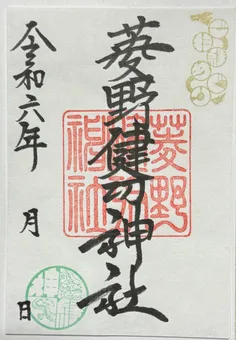 菱野健功神社
菱野
神社
令和六年
月
日